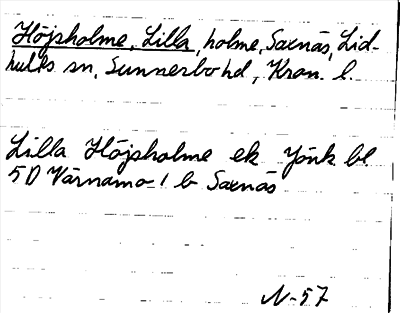 Höjsholme, Lilla, holme, Saxnäs, Lid-
hults sn, Sunnerbo hd, Kron. l.
Lilla Höjsholme ek Jönk bl
5D Värnamo-1 b Saxnäs
N-57